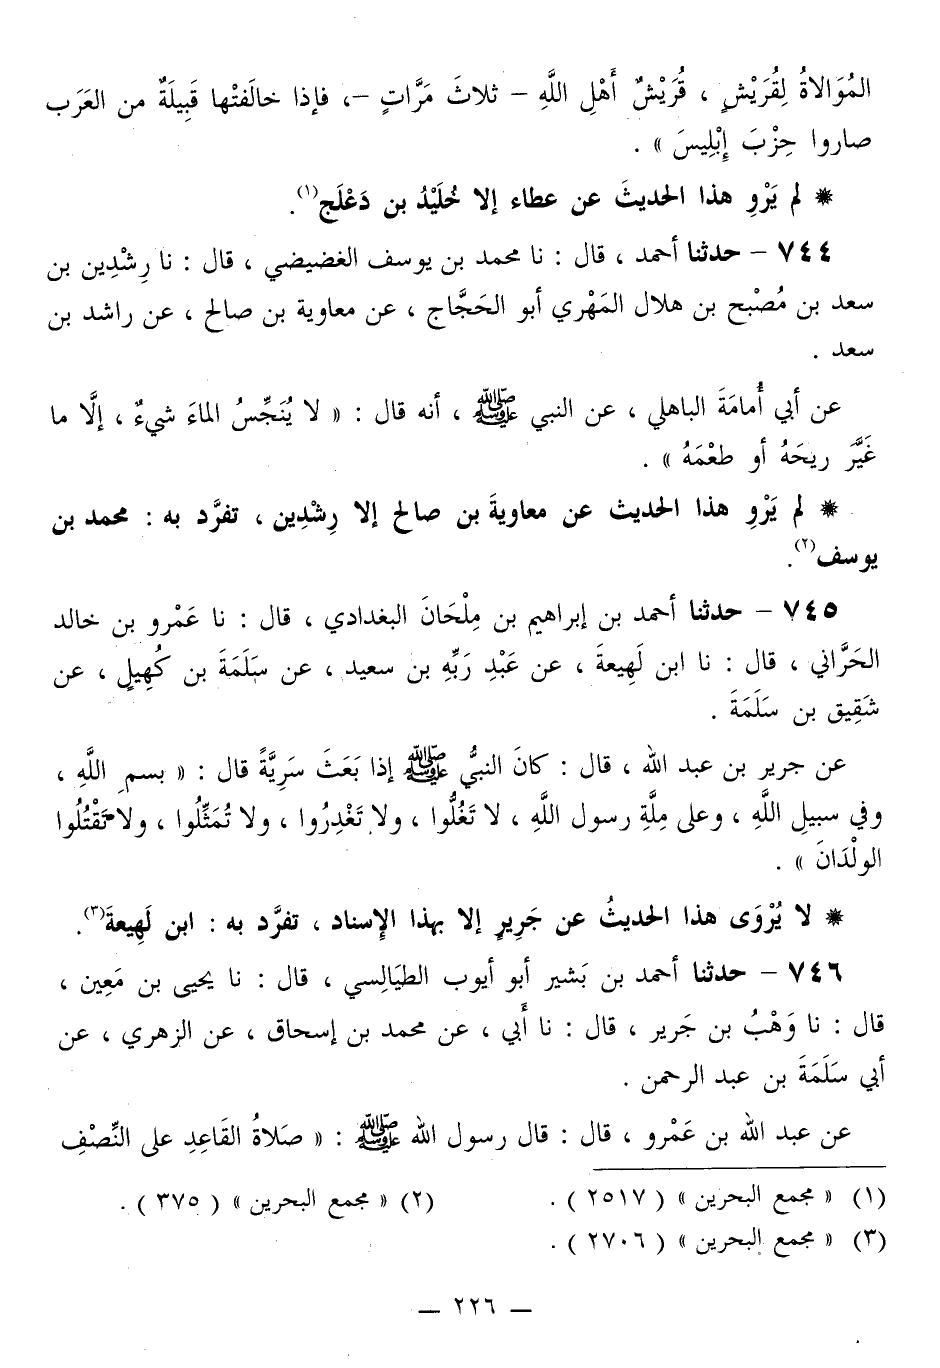 المُوَالاةُ لِقُرَيْشٍ ، قُرَيْشٌ أَهْلِ اللَّهِ – ثلاثَ مَرَّاتٍ –، فإذا خالَفتْها قَبِيلَةٌ من العَرَب
صاروا حِزْبَ إِبْلِيسَ » .
* لم يَرْوِ هذا الحديثَ عن عطاء إلا خُلَيْدُ بن دَعْلَج(١).
٧٤٤ – حدثنا أحمد ، قال : نا محمد بن يوسف الغضيضي ، قال : نا رِشْدِين بن
سعد بن مُصْبح بن هلال المَهْري أبو الحَجَّاج ، عن معاوية بن صالح ، عن راشد بن
سعد .
عن أبي أُمامَةَ الباهلي ، عن النبي ﷺ ، أنه قال : « لا يُنَجِّسُ الماءَ شيءٌ ، إلَّا ما
غَيَّرَ ريحَهُ أو طعْمَهُ » .
* لم يَرْوِ هذا الحديث عن معاويةَ بن صالح إلا رِشْدِين ، تفرَّد به : محمد بن
يوسف(٢).
٧٤٥ – حدثنا أحمد بن إبراهيم بن مِلْحَانَ البغدادي ، قال : نا عَمْرو بن خالد
الحَرَّاني ، قال : نا ابن لَهِيعةَ ، عن عَبْدِ رَبِّهِ بن سعيد ، عن سَلَمَةَ بن كُهَيلٍ ، عن
شَقِيق بن سَلَمَةَ .
عن جرير بن عبد الله ، قال : كانَ النبيُّ ﷺ إذا بَعَثَ سَرِيَّةً قال : « بسمِ اللَّهِ ،
وفي سبيلِ اللَّهِ ، وعلى مِلَّةِ رسول اللَّهِ ، لا تَغُلُّوا ، ولا تَغْدِرُوا ، ولا تُمَثِّلُوا ، ولا تَقْتُلُوا
الولْدَانَ » .
* لا يُرْوَى هذا الحديثُ عن جَرِيرٍ إلا بهذا الإِسناد ، تفرَّد به : ابن لَهِيعةَ(٣).
٧٤٦ – حدثنا أحمد بن بَشير أبو أيوب الطيَالِسي ، قال : نا يحيى بن مَعِين ،
قال : نا وَهْبُ بن جَرير ، قال : نا أَبي ، عن محمد بن إسحاق ، عن الزهري ، عن
أبي سَلَمَةَ بن عبد الرحمن .
عن عبد الله بن عَمْرو ، قال : قال رسول الله ﷺ : « صَلاةُ القَاعِدِ على النِّصْفِ
(١) « مجمع البحرين » ( ٢٥١٧ ) .
(٢) « مجمع البحرين » ( ٣٧٥ ) .
(٣) « مجمع البحرين » ( ٢٧٠٦ ) .
— ٢٢٦ —